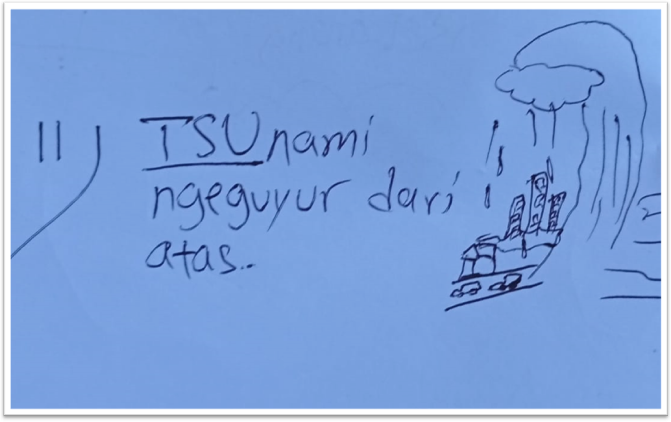 11) TSUnami
ngeguyur dari
atas..